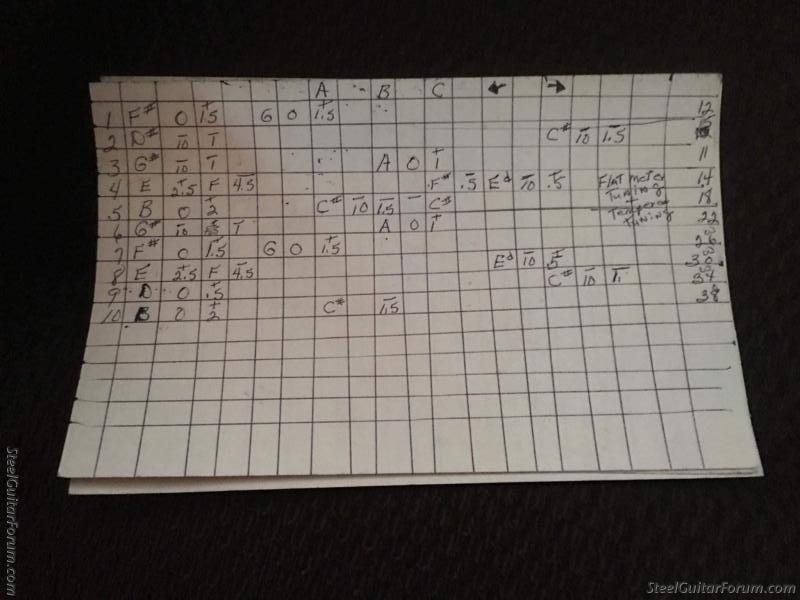 A B C ← →
1 F# 0 +1.5 G 0 +1.5 12
2 D# -10 -1 C# -10 -1.5
3 G# -10 -1 A 0 +1 11
4 E +2.5 F -4.5 F# .5 Eb -10 .5 Flat meter 14
5 B 0 +2 C# -10 -1.5 - C# Tuning + 18
6 G# -10 -1 A 0 +1 Tempered Tuning 22
7 F# 0 1.5 G 0 -1.5 26
8 E +2.5 F -4.5 Eb -10 .5 30
9 D 0 +.5 C# -10 -1. 34
10 B 0 +2 C# -1.5 38
SteelGuitarForum.com
SteelGuitarForum.com